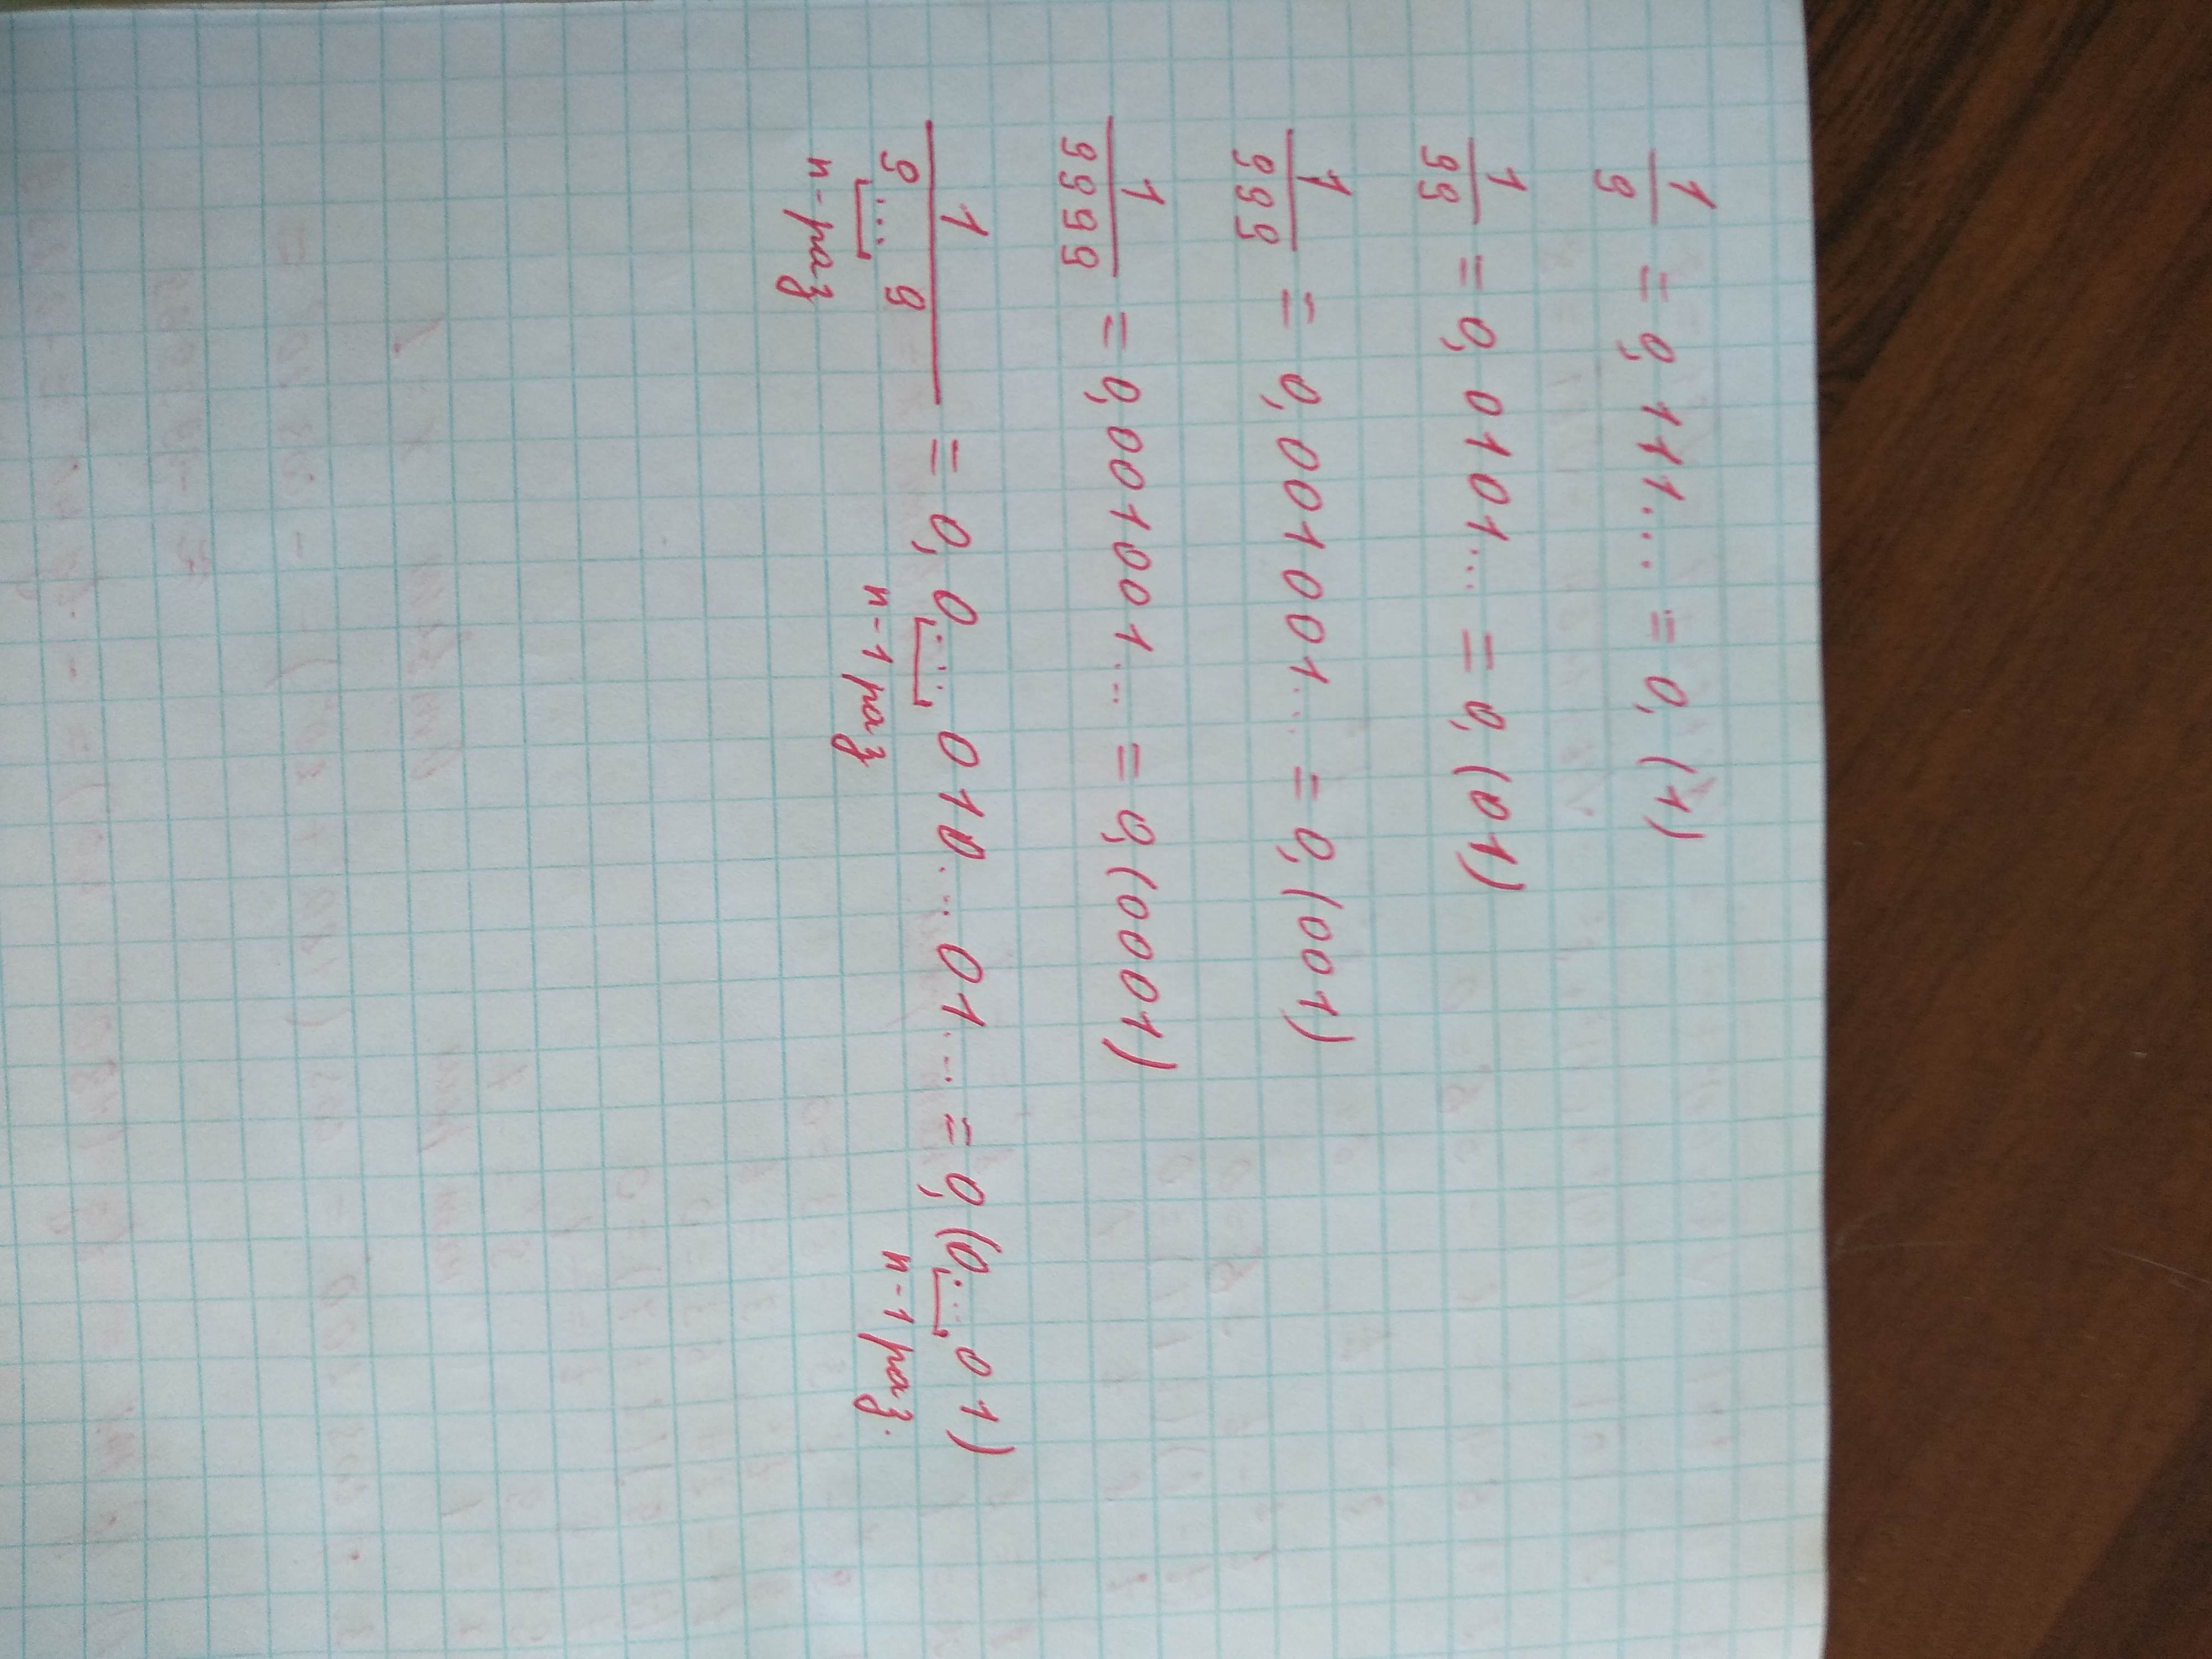 1/9 = 0,111... = 0,(1)
1/99 = 0,0101... = 0,(01)
1/999 = 0,001001... = 0,(001)
1/9999 = 0,001001... = 0,(0001)
1/9...9 = 0,0...010...01... = 0,(0...01)
n-раз n-1 раз n-1 раз.